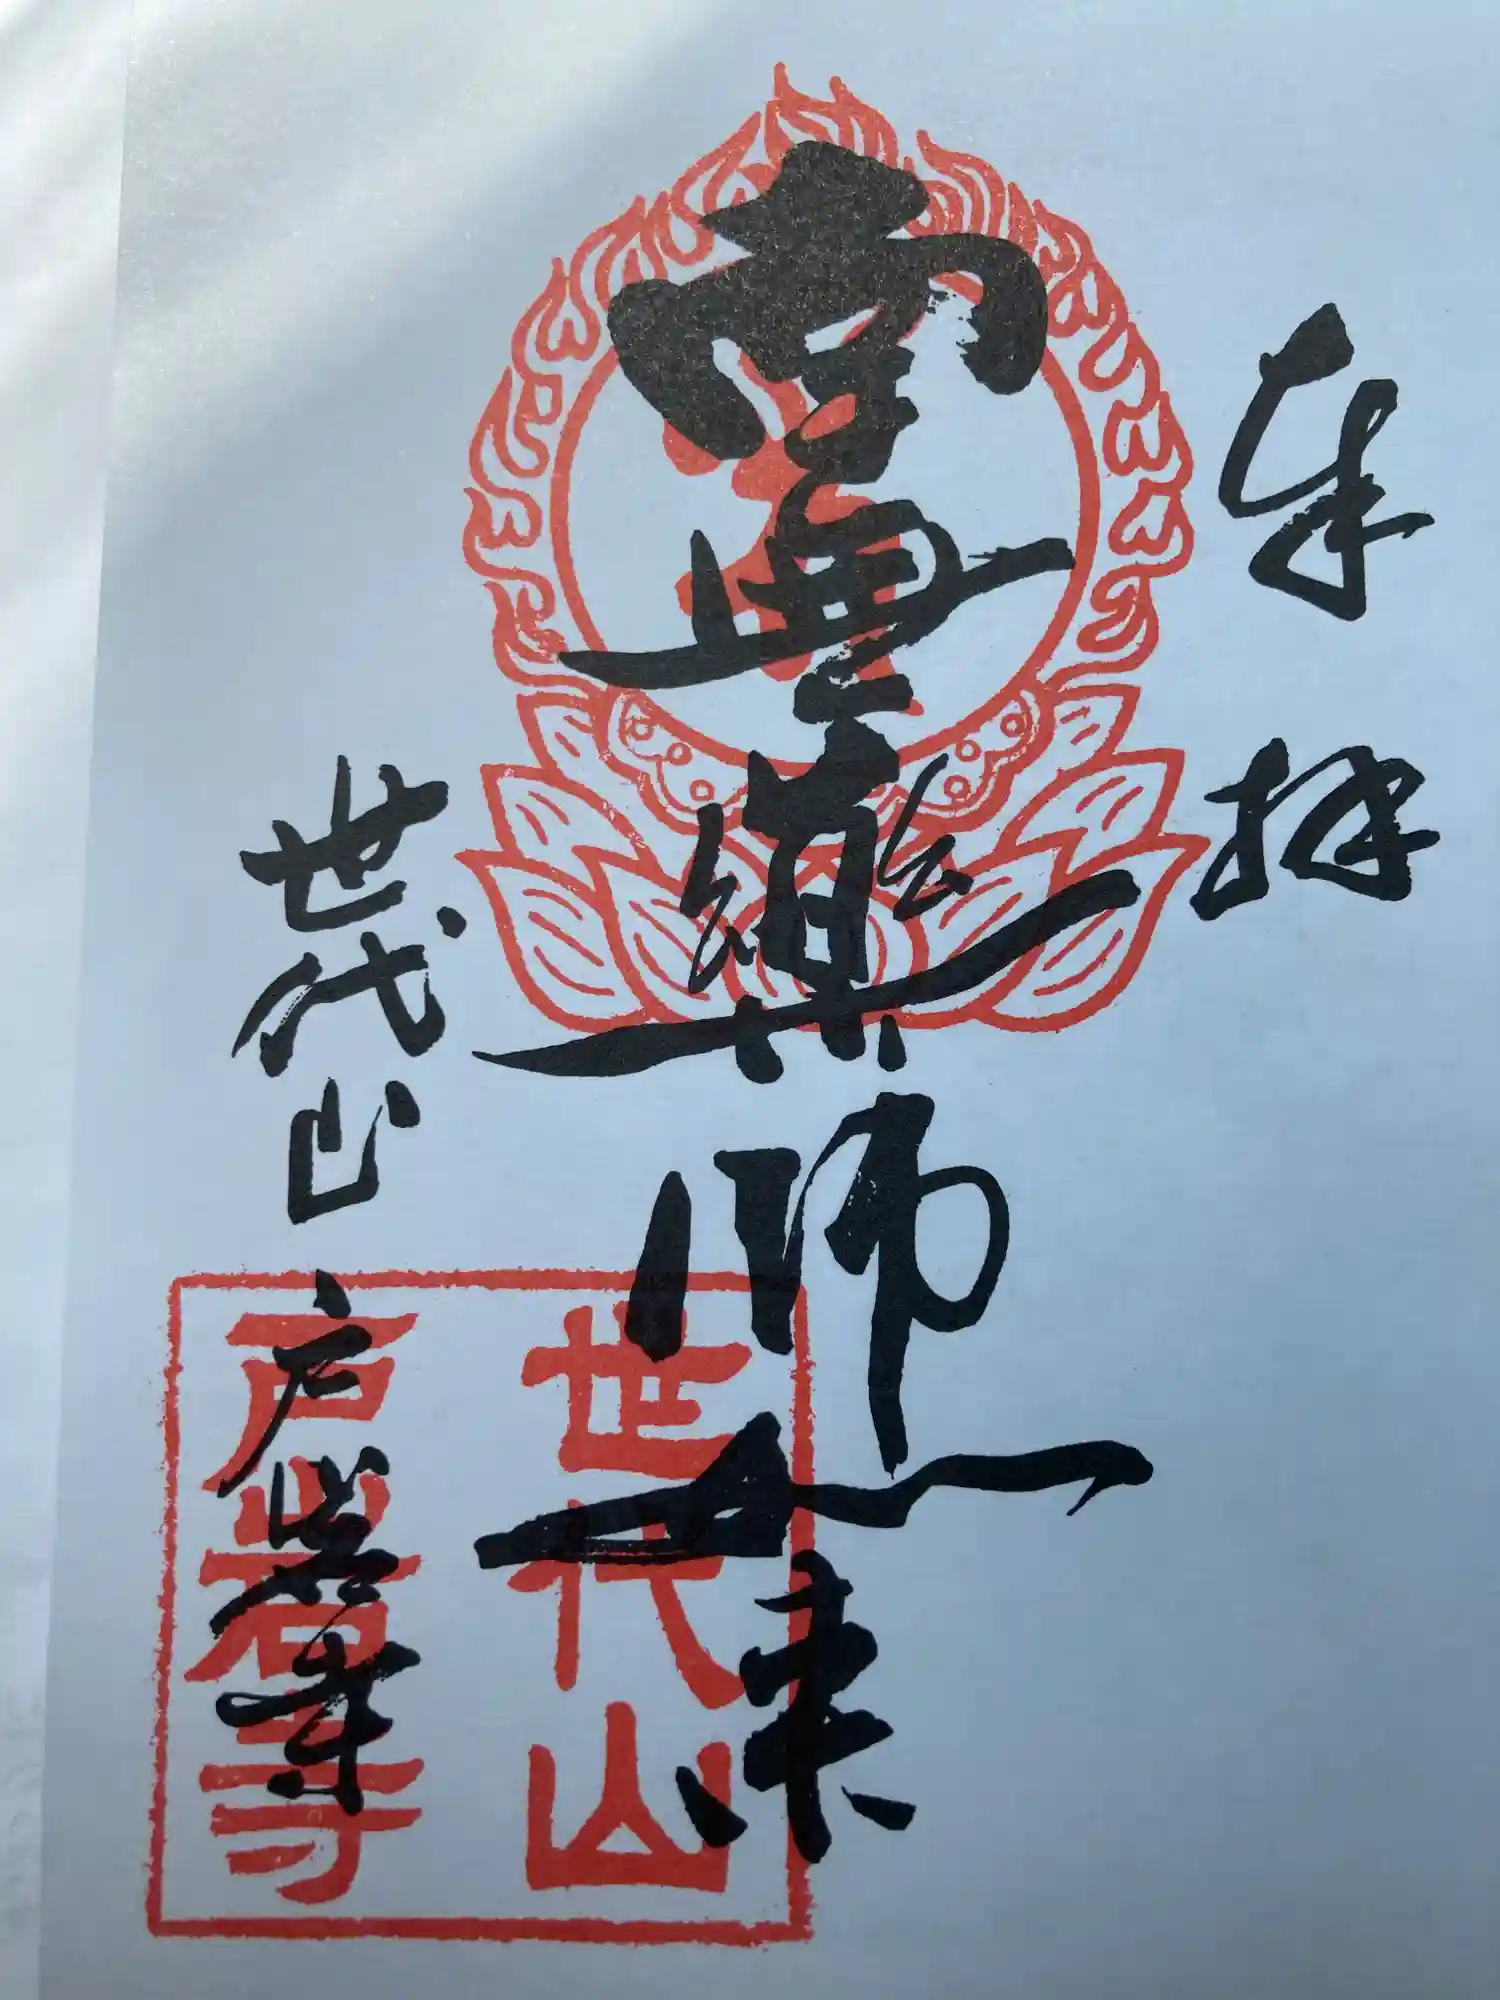 奉拝
霊薬師如来
世代山
戸岩寺
世代山
戸岩寺